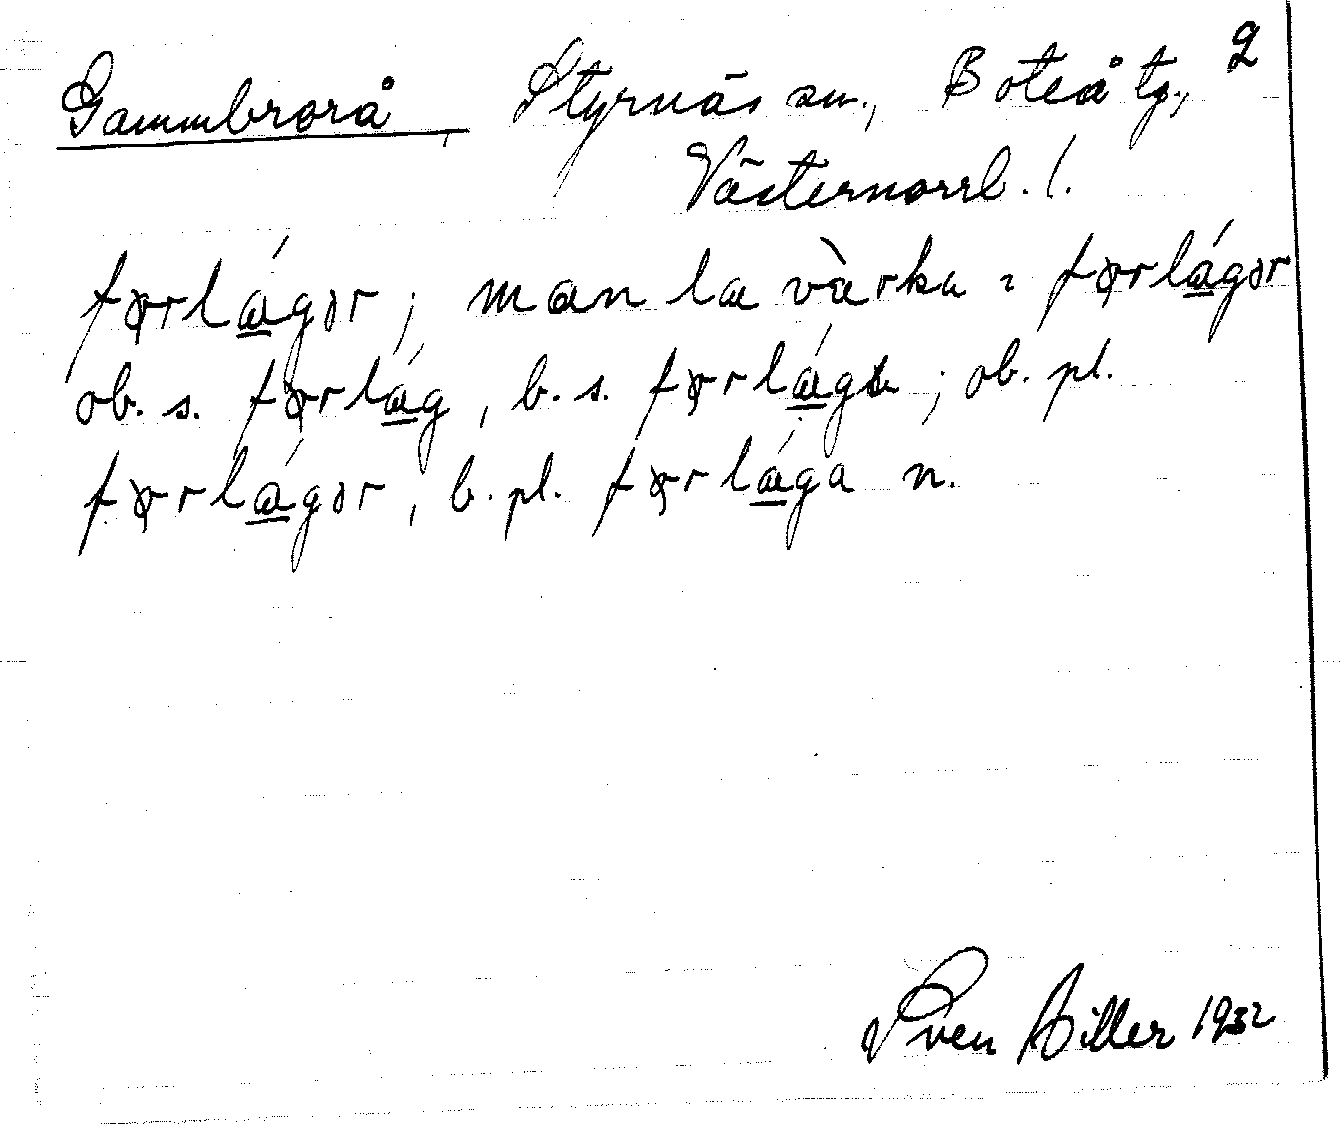 Gammbrorå, Styrnäs sn., Boteå tg., 2
Västernorrl. l.
fɤrlágər; man la vàrka ı fɤrlágər
ob. s. fɤrlág, b. s. fɤrlágə; ob. pl.
fɤrlágər, b. pl. fɤrlága n.
Sven Hiller 1932